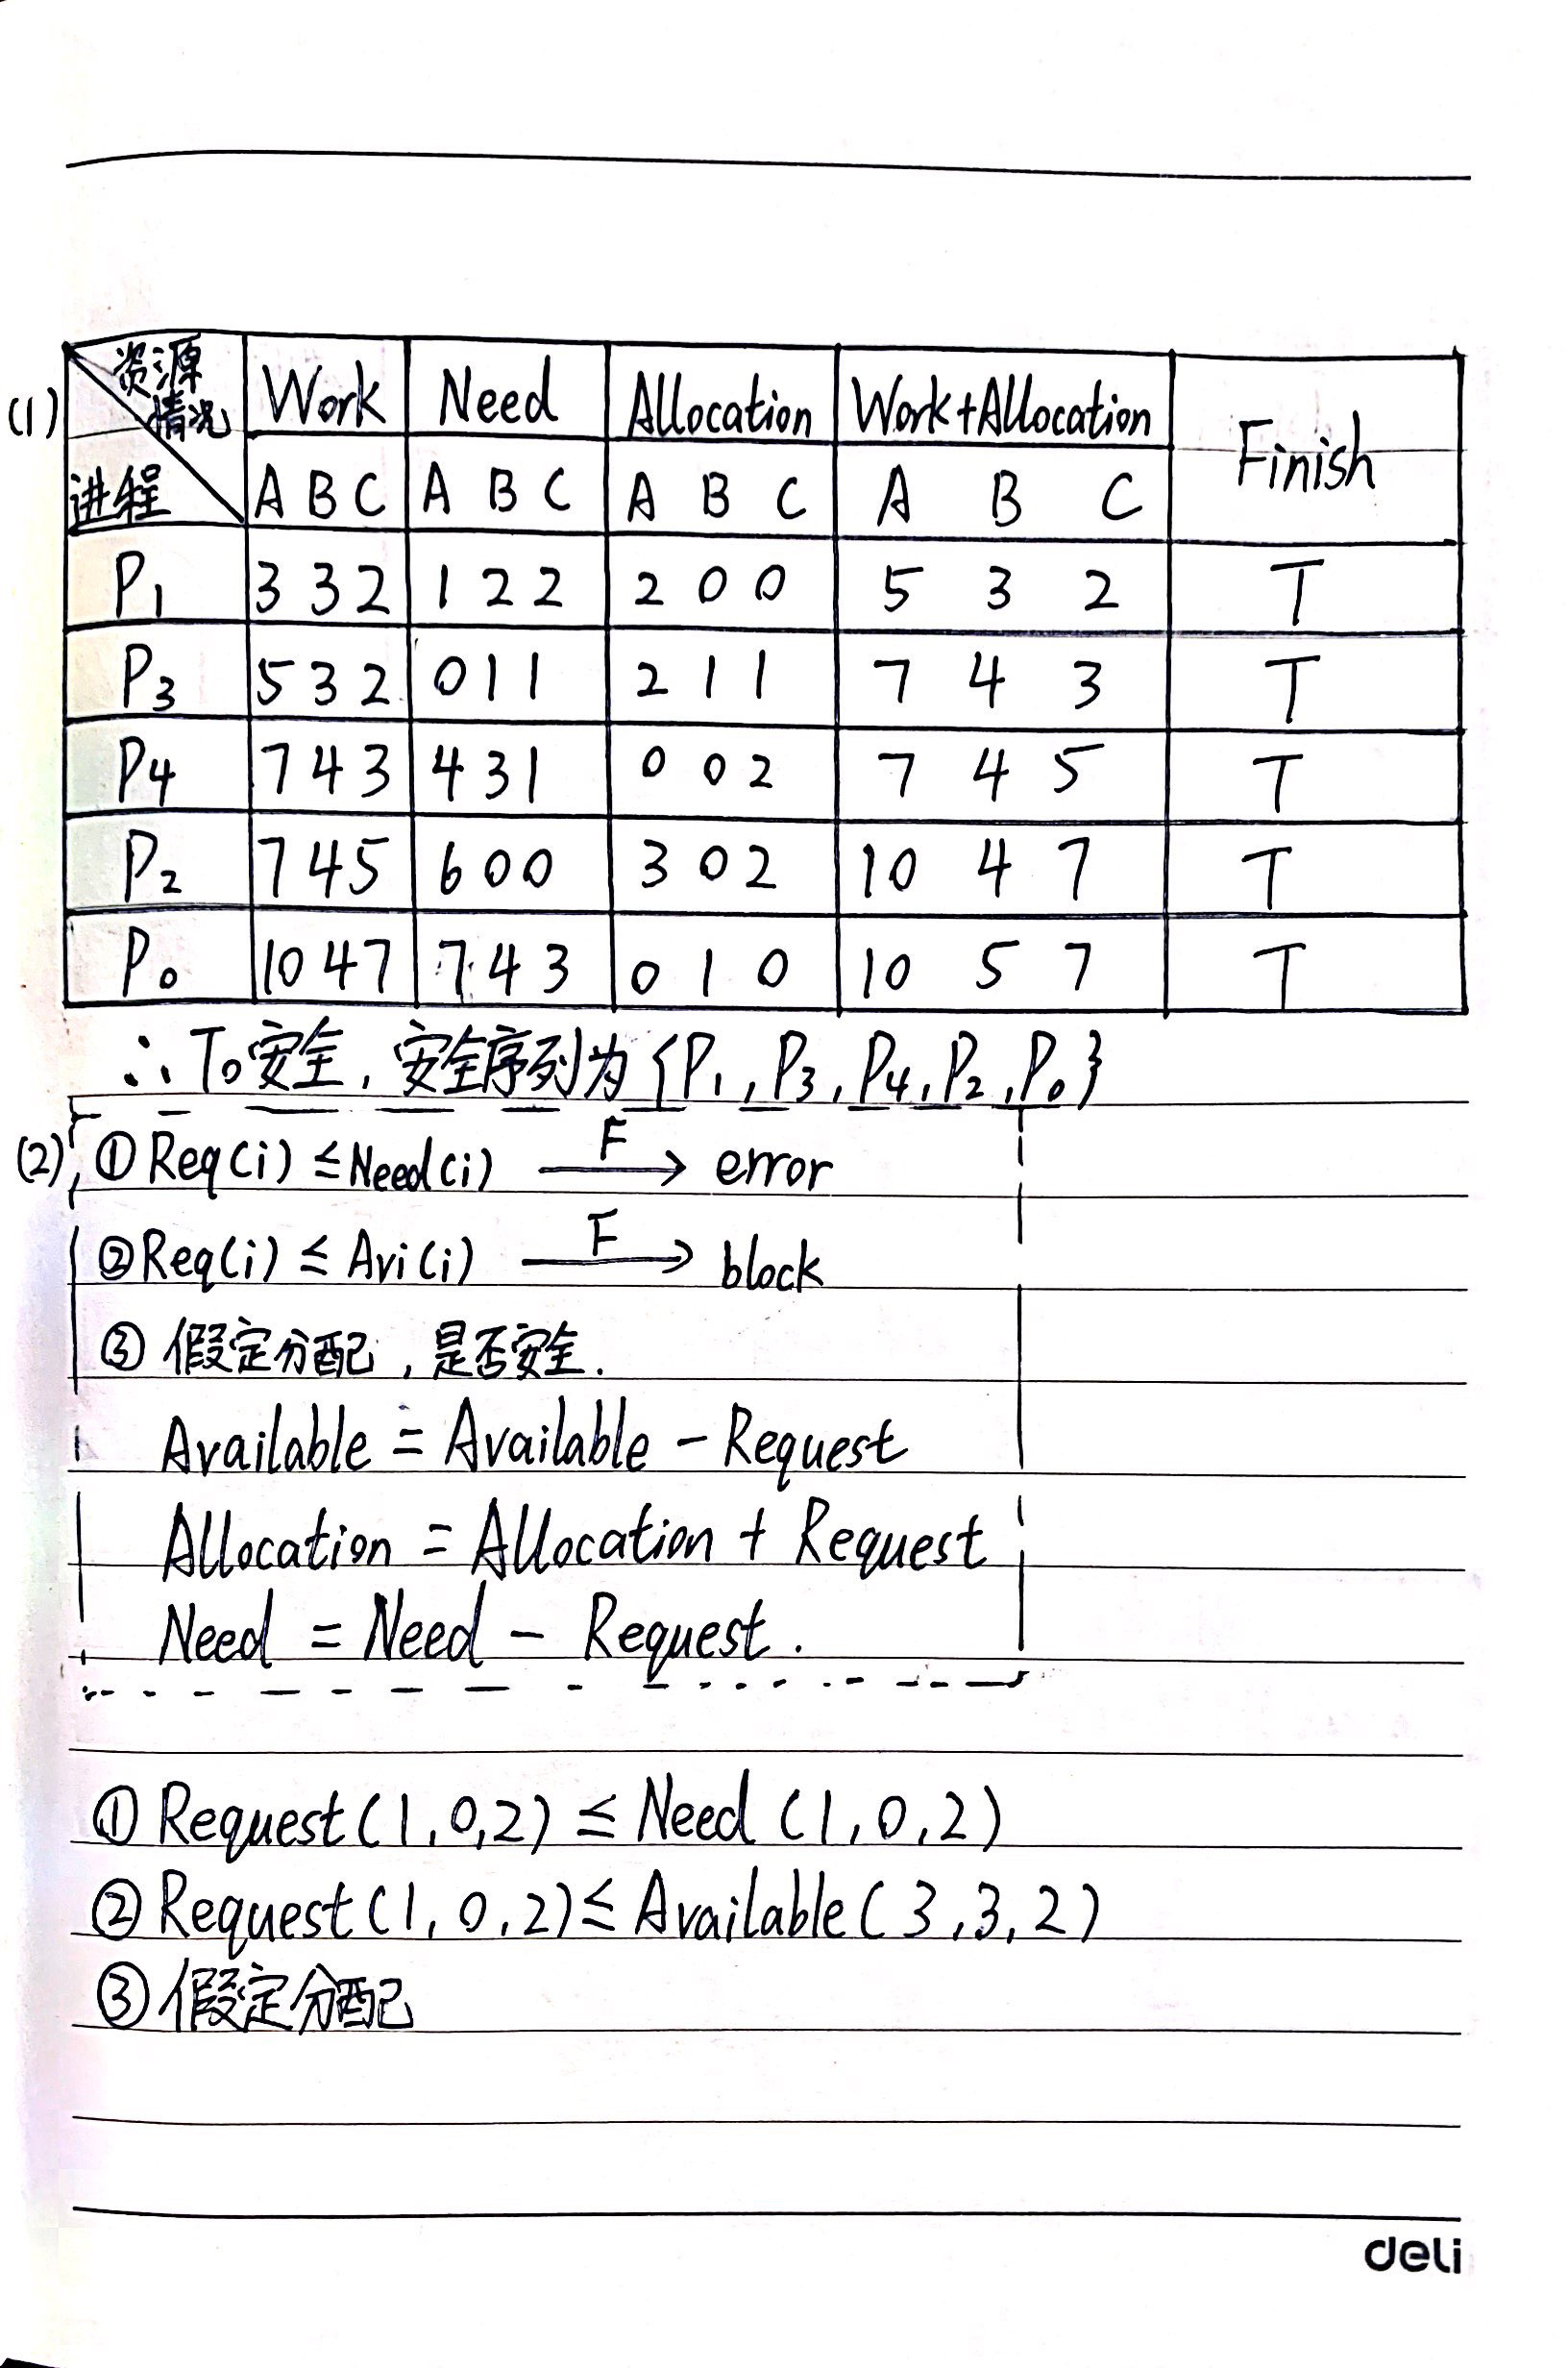 (1) 资源情况 Work Need Allocation Work+Allocation Finish
进程 A B C A B C A B C A B C
P1 3 3 2 1 2 2 2 0 0 5 3 2 T
P3 5 3 2 0 1 1 2 1 1 7 4 3 T
P4 7 4 3 4 3 1 0 0 2 7 4 5 T
P2 7 4 5 6 0 0 3 0 2 10 4 7 T
P0 10 4 7 7 4 3 0 1 0 10 5 7 T
∴ T0安全, 安全序列为 {P1, P3, P4, P2, P0}
(2) ① Req(i) ≤ Need(i) —F→ error
② Req(i) ≤ Avi(i) —F→ block
③ 假定分配, 是否安全.
Available = Available - Request
Allocation = Allocation + Request
Need = Need - Request.
① Request(1,0,2) ≤ Need (1,0,2)
② Request(1,0,2) ≤ Available(3,3,2)
③ 假定分配
deli